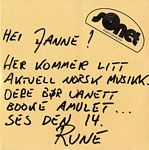 sonet
HEI JANNE!
HER KOMMER LITT
AKTUELL NORSK MUSIKK.
DERE BØR UANSETT
BOOKE AMULET...
SES DEN 14.
RUNE